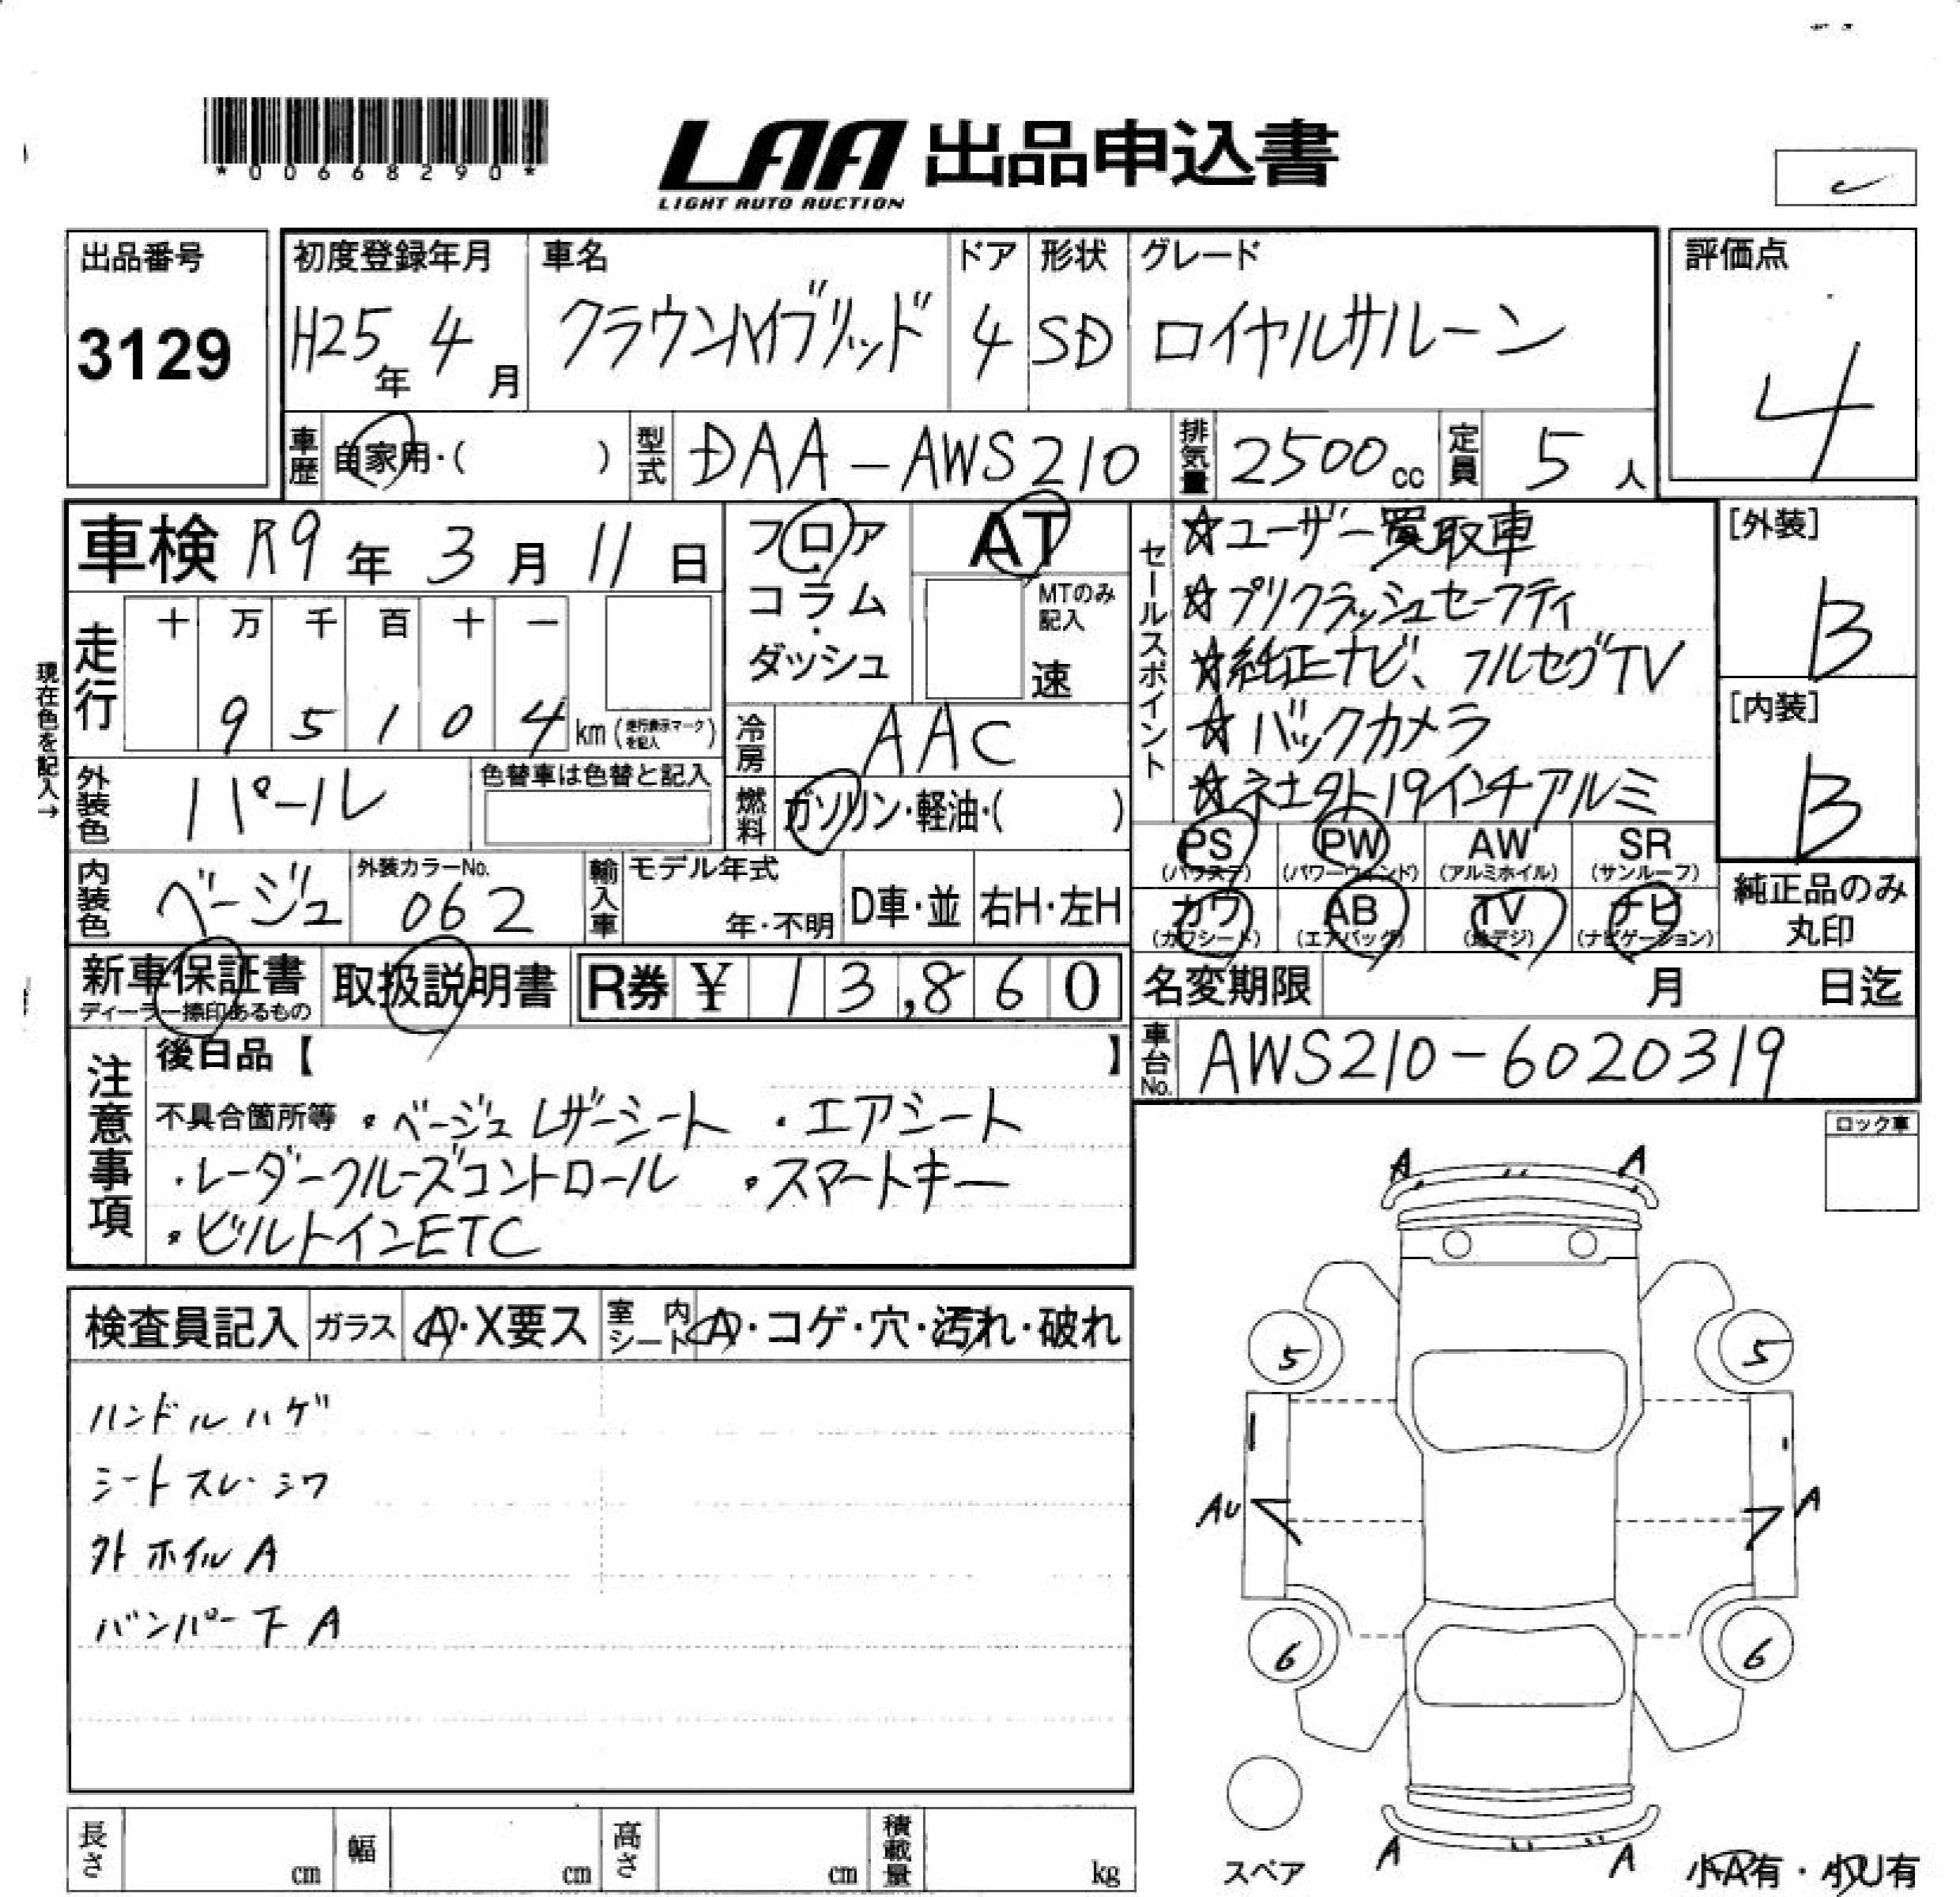 *00668290*
LAA 出品申込書
LIGHT AUTO AUCTION
出品番号
3129
初度登録年月
H25年 4月
車名
クラウンハイブリッド
ドア
4
形状
SD
グレード
ロイヤルサルーン
評価点
4
車歴
自家用・( )
型式
DAA-AWS210
排気量
2500cc
定員
5人
車検 R9年 3月 11日
走行
十 万 千 百 十 一
9 5 1 0 4 km (走行表示マークを記入)
現在色を記入→
外装色
パール
色替車は色替と記入
内装色
ベージュ
外装カラーNo.
062
フロア
・
コラム
・
ダッシュ
AT
MTのみ記入
速
冷房
AAC
燃料
ガソリン・軽油・( )
輸入車
モデル年式
年・不明
D車・並
右H・左H
セールスポイント
☆ユーザー買取車
☆プリクラッシュセーフティ
☆純正ナビ、フルセグTV
☆バックカメラ
☆ネエタト19インチアルミ
[外装]
B
[内装]
B
PS (パワステ)
PW (パワーウィンド)
AW (アルミホイル)
SR (サンルーフ)
カワ (カワシート)
AB (エアバッグ)
TV (地デジ)
ナビ (ナビゲーション)
純正品のみ
丸印
新車保証書
ディーラー捺印あるもの
取扱説明書
R券 ¥ 13,860
名変期限 月 日迄
車台No.
AWS210-6020319
注意事項
後日品【 】
不具合箇所等 ・ベージュレザーシート ・エアシート
・レーダークルーズコントロール ・スマートキー
・ビルトインETC
ロック車
検査員記入
ガラス
A・X要ス
室内シート
A・コゲ・穴・汚れ・破れ
ハンドルハゲ
シートスレ・シワ
外ホイルA
バンパー下A
A A
5 5
AU A
6 6
A A
スペア
小A有・小U有
長さ cm
幅 cm
高さ cm
積載量 kg